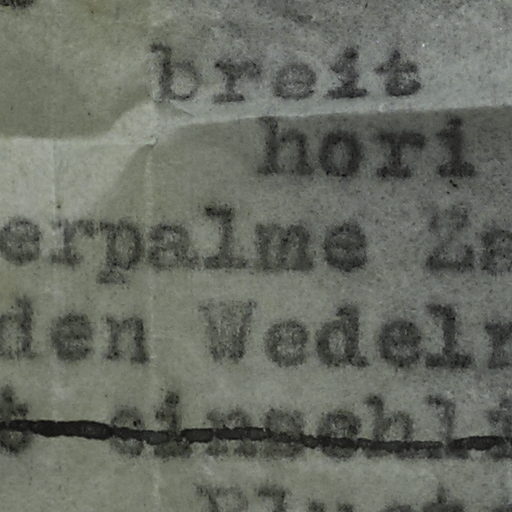 breit
hori
erpalme Za
den Wedel
t einschli